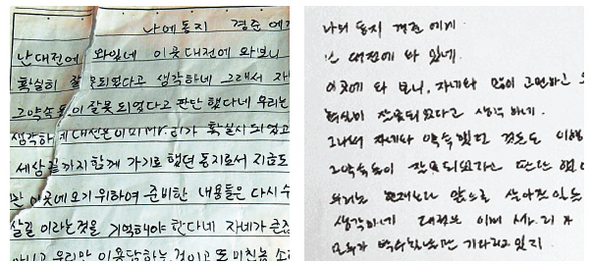 나에동지 경준 에게
난대전에 와있네 이곳대전에 와보니
확실히 잘못되었다고 생각하네 그래서 자
그약속들이잘못되었다고 판단했다네 우리는
생각하 대선은이미Mr.리가 확실시되었고
세상끝까지함께 가기로 했던 동지로서 지금도
이곳에오기위하여 준비한 내용들은 다시 수
살길 이라는것을 기억해야 한다네 자네가 큰집
아니고 우리만 이용당하는 것이고 또 미친놈 소
나의 동지 경준 에게.
대전에 와 있네.
이곳에 와 보니, 자네와 많이 고민하고
확실히 잘못되었다고 생각하네.
그래서 자네와 약속했던 것들도 이행
그약속들이 잘못되었다고 판단했
우리는 현재보다 앞으로 살아갈 일들
생각하네 대선은 이미
모두가 박수치면서 기다리고 있지.